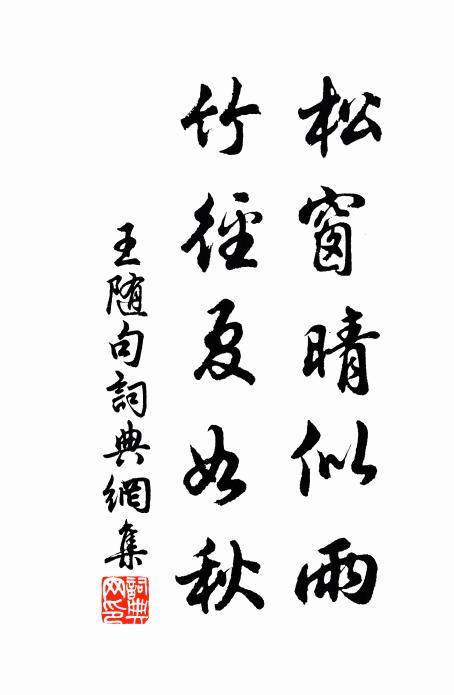 松窗晴似雨
竹徑夏如秋
王随句詞典網集
詞典網印